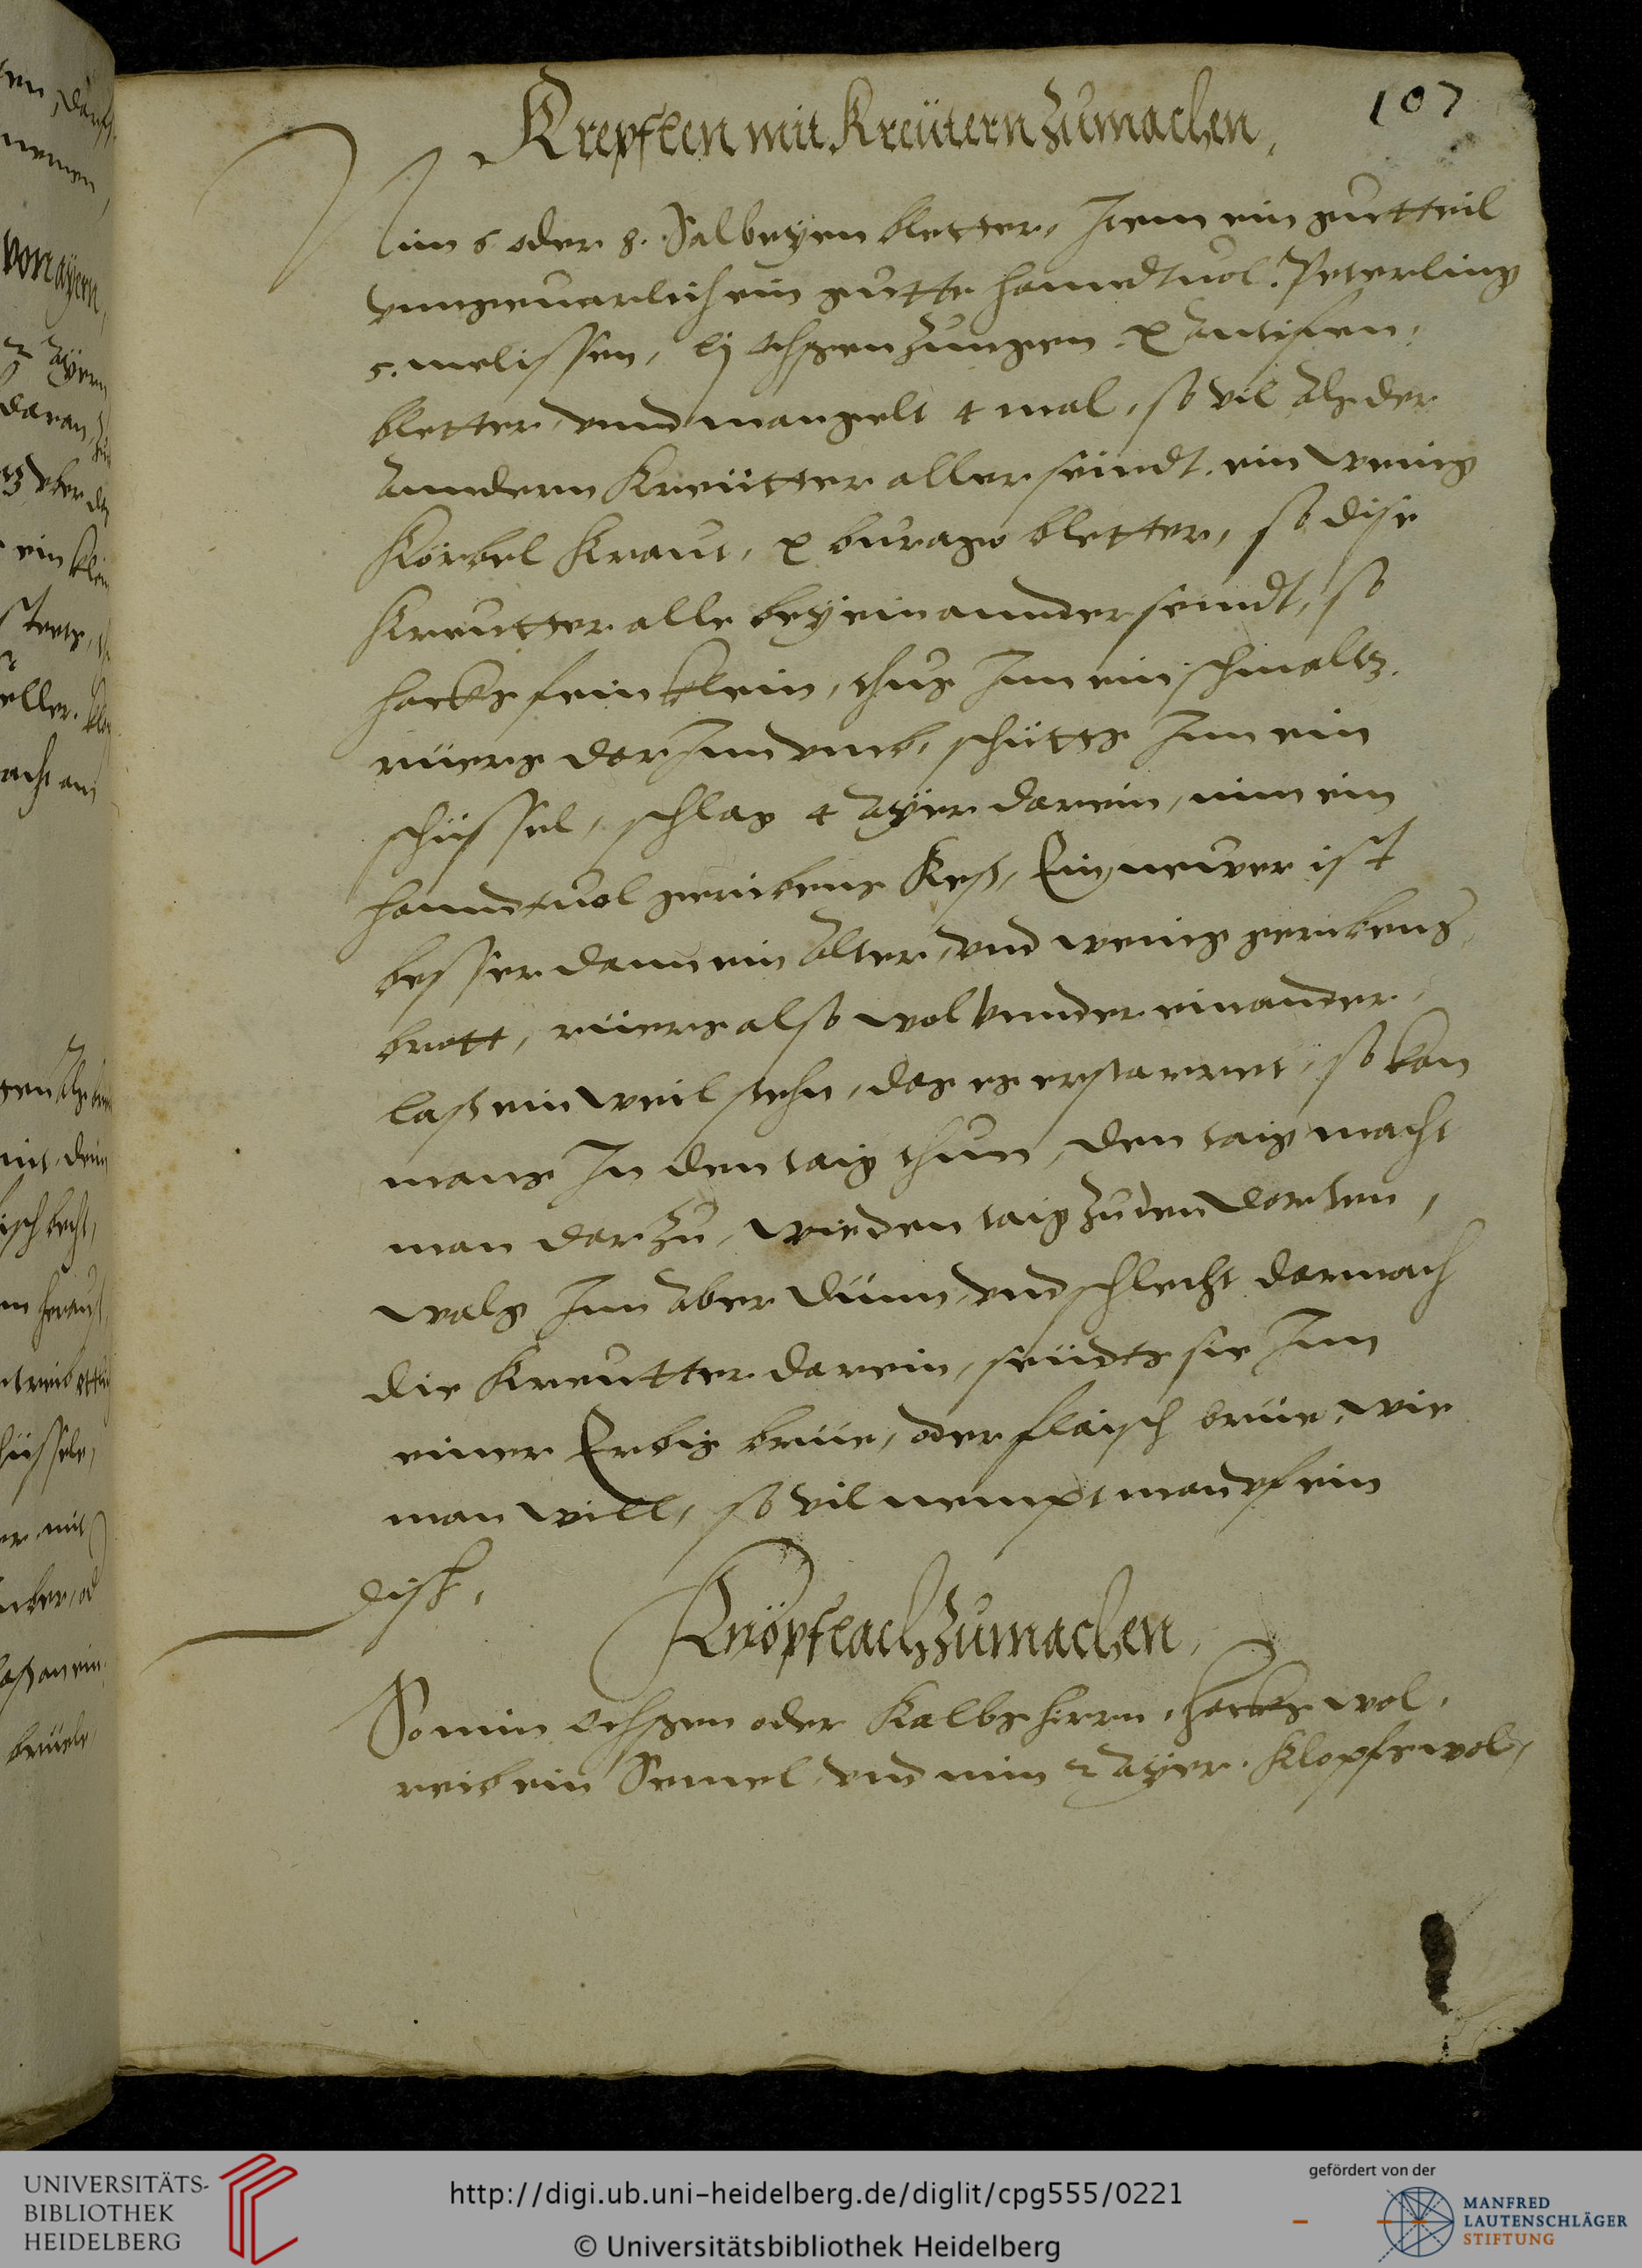 107
Krepflen mit Kreütern zumachen,
Nim 6 oder 8. Salbeyen bletter, Jtem ein gutt teil
vnngeuarlich ein gutte hanndtuol. Peterling
5. melissen, Ochssen Zungen x Antifen,
bletter, vnnd mangelt 4 mal, so vil Als der
Anndern Kreütter aller seindt, ein wenig
Körbel Kraut, x burago bletter, so dise
Kreutter alle beyeinannder seindt, so
hacks fein klein, thus Jnn ein schmaltz,
rüers dar Jnn vmb, schütts Jnn ein
schüssel, schlag 4 Ayer darein, nim ein
hanndtuol geribens Keß, Ein newer ist
besser dann ein Alter, vnd wenig geribens
brott, rüers also wol vnnder einander,
laß ein weil stehn, das es erstarret, so kan
mans Jn den taig thun, den taig macht
man dar Zu, wie den taig Zu den dorten,
walg Jnn Aber dünn, vnd schlecht darnach
die Kreutter darein, seüdts sie Jnn
einer Erbis brüe, oder flaisch brüe, wie
man will, so vil nempt man vf ein
disch,
Knöpflach Zumachen,
So nim Ochssen oder Kalbs hirrn, hacks wol,
reib ein Semel, vnd nim 2 Ayer. Klopfs wol,
von ayern,
daran
ein klein
eller.
mit dem
er mit
laß an ein
UNIVERSITÄTS-
BIBLIOTHEK
HEIDELBERG
http://digi.ub.uni-heidelberg.de/diglit/cpg555/0221
© Universitätsbibliothek Heidelberg
gefördert von der
MANFRED
LAUTENSCHLÄGER
STIFTUNG